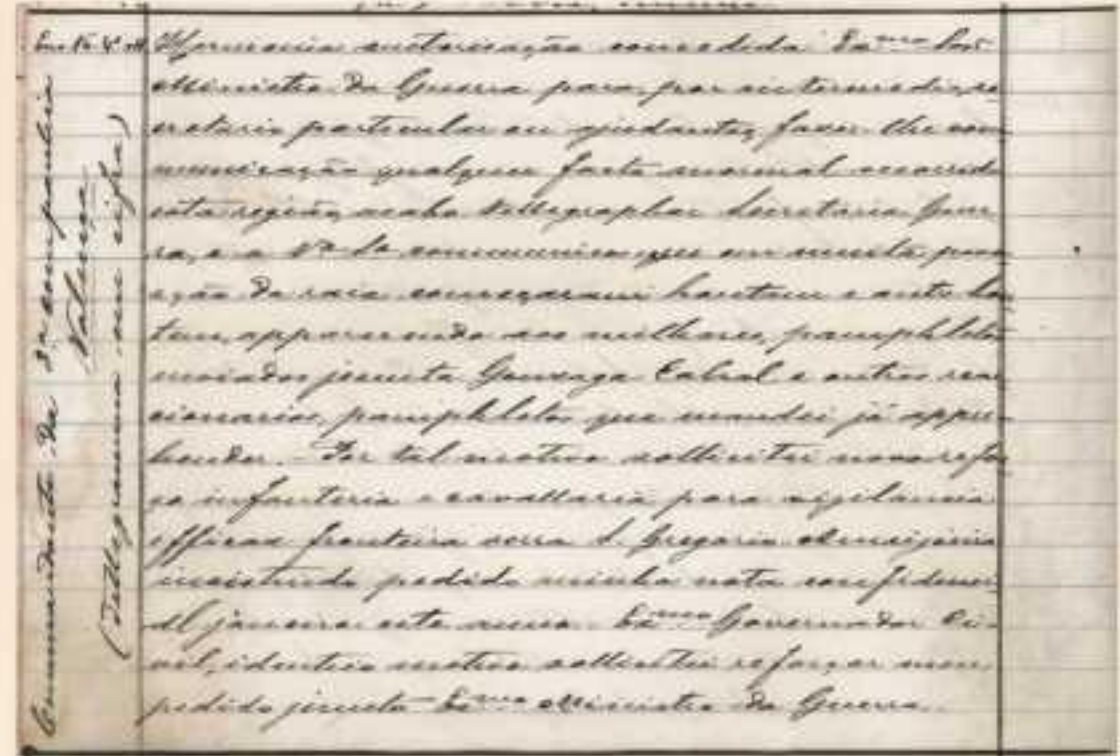 Harmonia autorisação concedida Ex.mo Snr.
Ministro da Guerra para, por intermedio, se
cretario particular ou ajudantes, fazer-lhe com
municação qualquer facto anormal occorrido
esta região, acabo tellegraphar Secretaria Guer
ra, e a V.ª S.ª communico que em muita
da raia começaram hontem e ante hon
tem, apparecendo aos milhares, pamphletos
enviados jesuita Gonzaga Cabral e outros reac
cionarios, pamphletos que mandei já appre
hender. Por tal motivo sollicitei novo refor
ço infanteria e cavallaria para vigilancia
efficaz fronteira serra S. Gregorio
insistindo pedido minha nota confidencial
janeiro este anno. Ex.mo Governador Ci
vil, identico motivo sollicitei reforçar meu
pedido junto Ex.mo Ministro da Guerra.
Commandante da 3ª companhia
Valença
(Tellegramma em cifra)